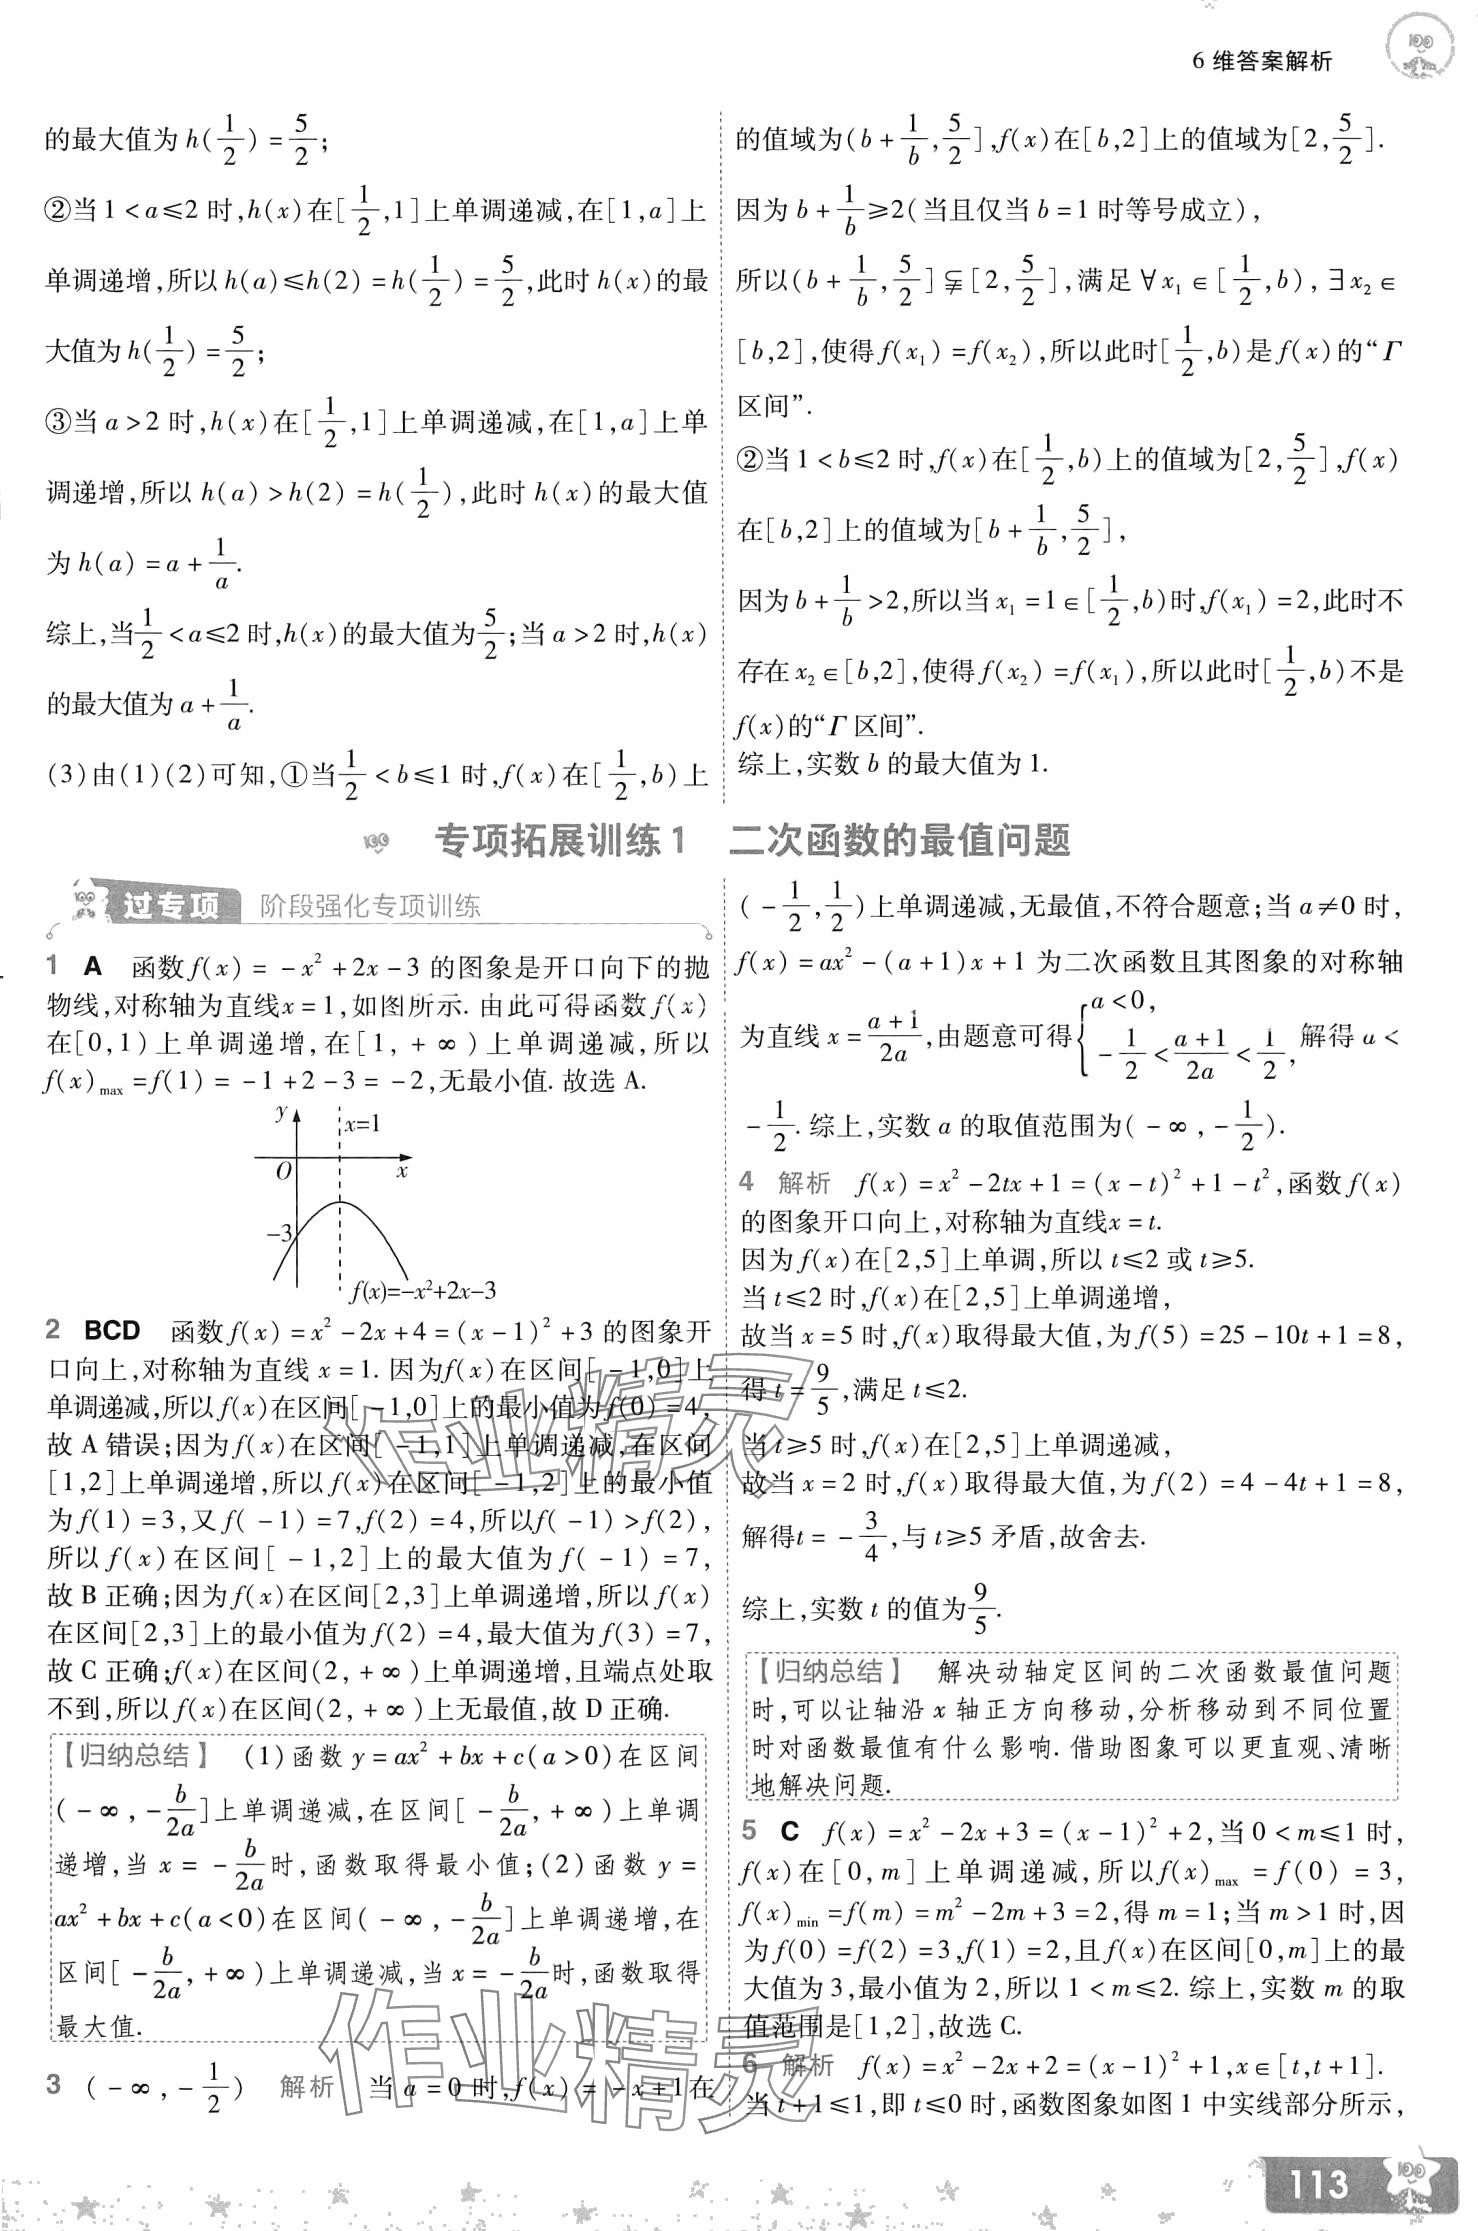 6 维答案解析
的最大值为 h(1/2) = 5/2;
②当 1 < a ≤ 2 时,h(x)在[1/2,1]上单调递减,在[1,a]上
单调递增,所以 h(a) ≤ h(2) = h(1/2) = 5/2,此时 h(x)的最
大值为 h(1/2) = 5/2;
③当 a > 2 时,h(x)在[1/2,1]上单调递减,在[1,a]上单
调递增,所以 h(a) > h(2) = h(1/2),此时 h(x)的最大值
为 h(a) = a + 1/a.
综上,当 1/2 < a ≤ 2 时,h(x)的最大值为 5/2;当 a > 2 时,h(x)
的最大值为 a + 1/a.
(3)由(1)(2)可知,①当 1/2 < b ≤ 1 时,f(x)在[1/2,b)上
的值域为(b + 1/b,5/2],f(x)在[b,2]上的值域为[2,5/2].
因为 b + 1/b ≥ 2(当且仅当 b = 1 时等号成立),
所以(b + 1/b,5/2]⫋[2,5/2],满足∀x₁∈[1/2,b),∃x₂∈
[b,2],使得 f(x₁) = f(x₂),所以此时[1/2,b)是 f(x)的“Γ
区间”.
②当 1 < b ≤ 2 时,f(x)在[1/2,b)上的值域为[2,5/2],f(x)
在[b,2]上的值域为[b + 1/b,5/2],
因为 b + 1/b > 2,所以当 x₁ = 1∈[1/2,b)时,f(x₁) = 2,此时不
存在 x₂∈[b,2],使得 f(x₂) = f(x₁),所以此时[1/2,b)不是
f(x)的“Γ 区间”.
综上,实数 b 的最大值为 1.
专项拓展训练1 二次函数的最值问题
过专项 阶段强化专项训练
1 A 函数 f(x) = -x² + 2x - 3 的图象是开口向下的抛
物线,对称轴为直线x = 1,如图所示. 由此可得函数 f(x)
在[0,1)上单调递增,在[1, + ∞ )上单调递减,所以
f(x)max = f(1) = -1 + 2 - 3 = -2,无最小值. 故选 A.
y
x=1
O
x
-3
f(x)=-x²+2x-3
2 BCD 函数 f(x) = x² - 2x + 4 = (x - 1)² + 3 的图象开
口向上,对称轴为直线 x = 1. 因为f(x)在区间[ -1,0]上
单调递减,所以 f(x)在区间[ -1,0]上的最小值为 f(0) = 4,
故 A 错误;因为 f(x)在区间[ -1,1]上单调递减,在区间
[1,2]上单调递增,所以 f(x)在区间[ -1,2]上的最小值
为 f(1) = 3,又 f( -1) = 7,f(2) = 4,所以f( -1) > f(2),
所以 f(x)在区间[ -1,2]上的最大值为 f( -1) = 7,
故 B 正确;因为 f(x)在区间[2,3]上单调递增,所以 f(x)
在区间[2,3]上的最小值为 f(2) = 4,最大值为 f(3) = 7,
故 C 正确;f(x)在区间(2, + ∞ )上单调递增,且端点处取
不到,所以 f(x)在区间(2, + ∞ )上无最值,故 D 正确.
【归纳总结】 (1)函数 y = ax² + bx + c(a > 0)在区间
( - ∞ , - b/2a]上单调递减,在区间[ - b/2a, + ∞ )上单调
递增,当 x = - b/2a时,函数取得最小值;(2)函数 y =
ax² + bx + c(a < 0)在区间( - ∞ , - b/2a]上单调递增,在
区间[ - b/2a, + ∞ )上单调递减,当 x = - b/2a时,函数取得
最大值.
3 ( - ∞ , - 1/2) 解析 当 a = 0 时,f(x) = -x + 1在
( - 1/2,1/2)上单调递减,无最值,不符合题意;当 a ≠ 0 时,
f(x) = ax² - (a + 1)x + 1 为二次函数且其图象的对称轴
为直线 x = (a + 1)/2a,由题意可得{a < 0, - 1/2 < (a + 1)/2a < 1/2, 解得 a <
- 1/2. 综上,实数 a 的取值范围为( - ∞ , - 1/2).
4 解析 f(x) = x² - 2tx + 1 = (x - t)² + 1 - t²,函数 f(x)
的图象开口向上,对称轴为直线x = t.
因为 f(x)在[2,5]上单调,所以 t ≤ 2 或 t ≥ 5.
当 t ≤ 2 时,f(x)在[2,5]上单调递增,
故当 x = 5 时,f(x)取得最大值,为 f(5) = 25 - 10t + 1 = 8,
得 t = 9/5,满足 t ≤ 2.
当 t ≥ 5 时,f(x)在[2,5]上单调递减,
故当 x = 2 时,f(x)取得最大值,为 f(2) = 4 - 4t + 1 = 8,
解得t = - 3/4,与 t ≥ 5 矛盾,故舍去.
综上,实数 t 的值为 9/5.
【归纳总结】 解决动轴定区间的二次函数最值问题
时,可以让轴沿 x 轴正方向移动,分析移动到不同位置
时对函数最值有什么影响. 借助图象可以更直观、清晰
地解决问题.
5 C f(x) = x² - 2x + 3 = (x - 1)² + 2,当 0 < m ≤ 1 时,
f(x)在[0,m]上单调递减,所以f(x)max = f(0) = 3,
f(x)min = f(m) = m² - 2m + 3 = 2,得 m = 1;当 m > 1 时,因
为 f(0) = f(2) = 3,f(1) = 2,且 f(x)在区间[0,m]上的最
大值为 3,最小值为 2,所以 1 < m ≤ 2. 综上,实数 m 的取
值范围是[1,2],故选 C.
6 解析 f(x) = x² - 2x + 2 = (x - 1)² + 1,x∈[t,t + 1].
当 t + 1 ≤ 1,即 t ≤ 0 时,函数图象如图 1 中实线部分所示,
作业精灵
作业精灵
113